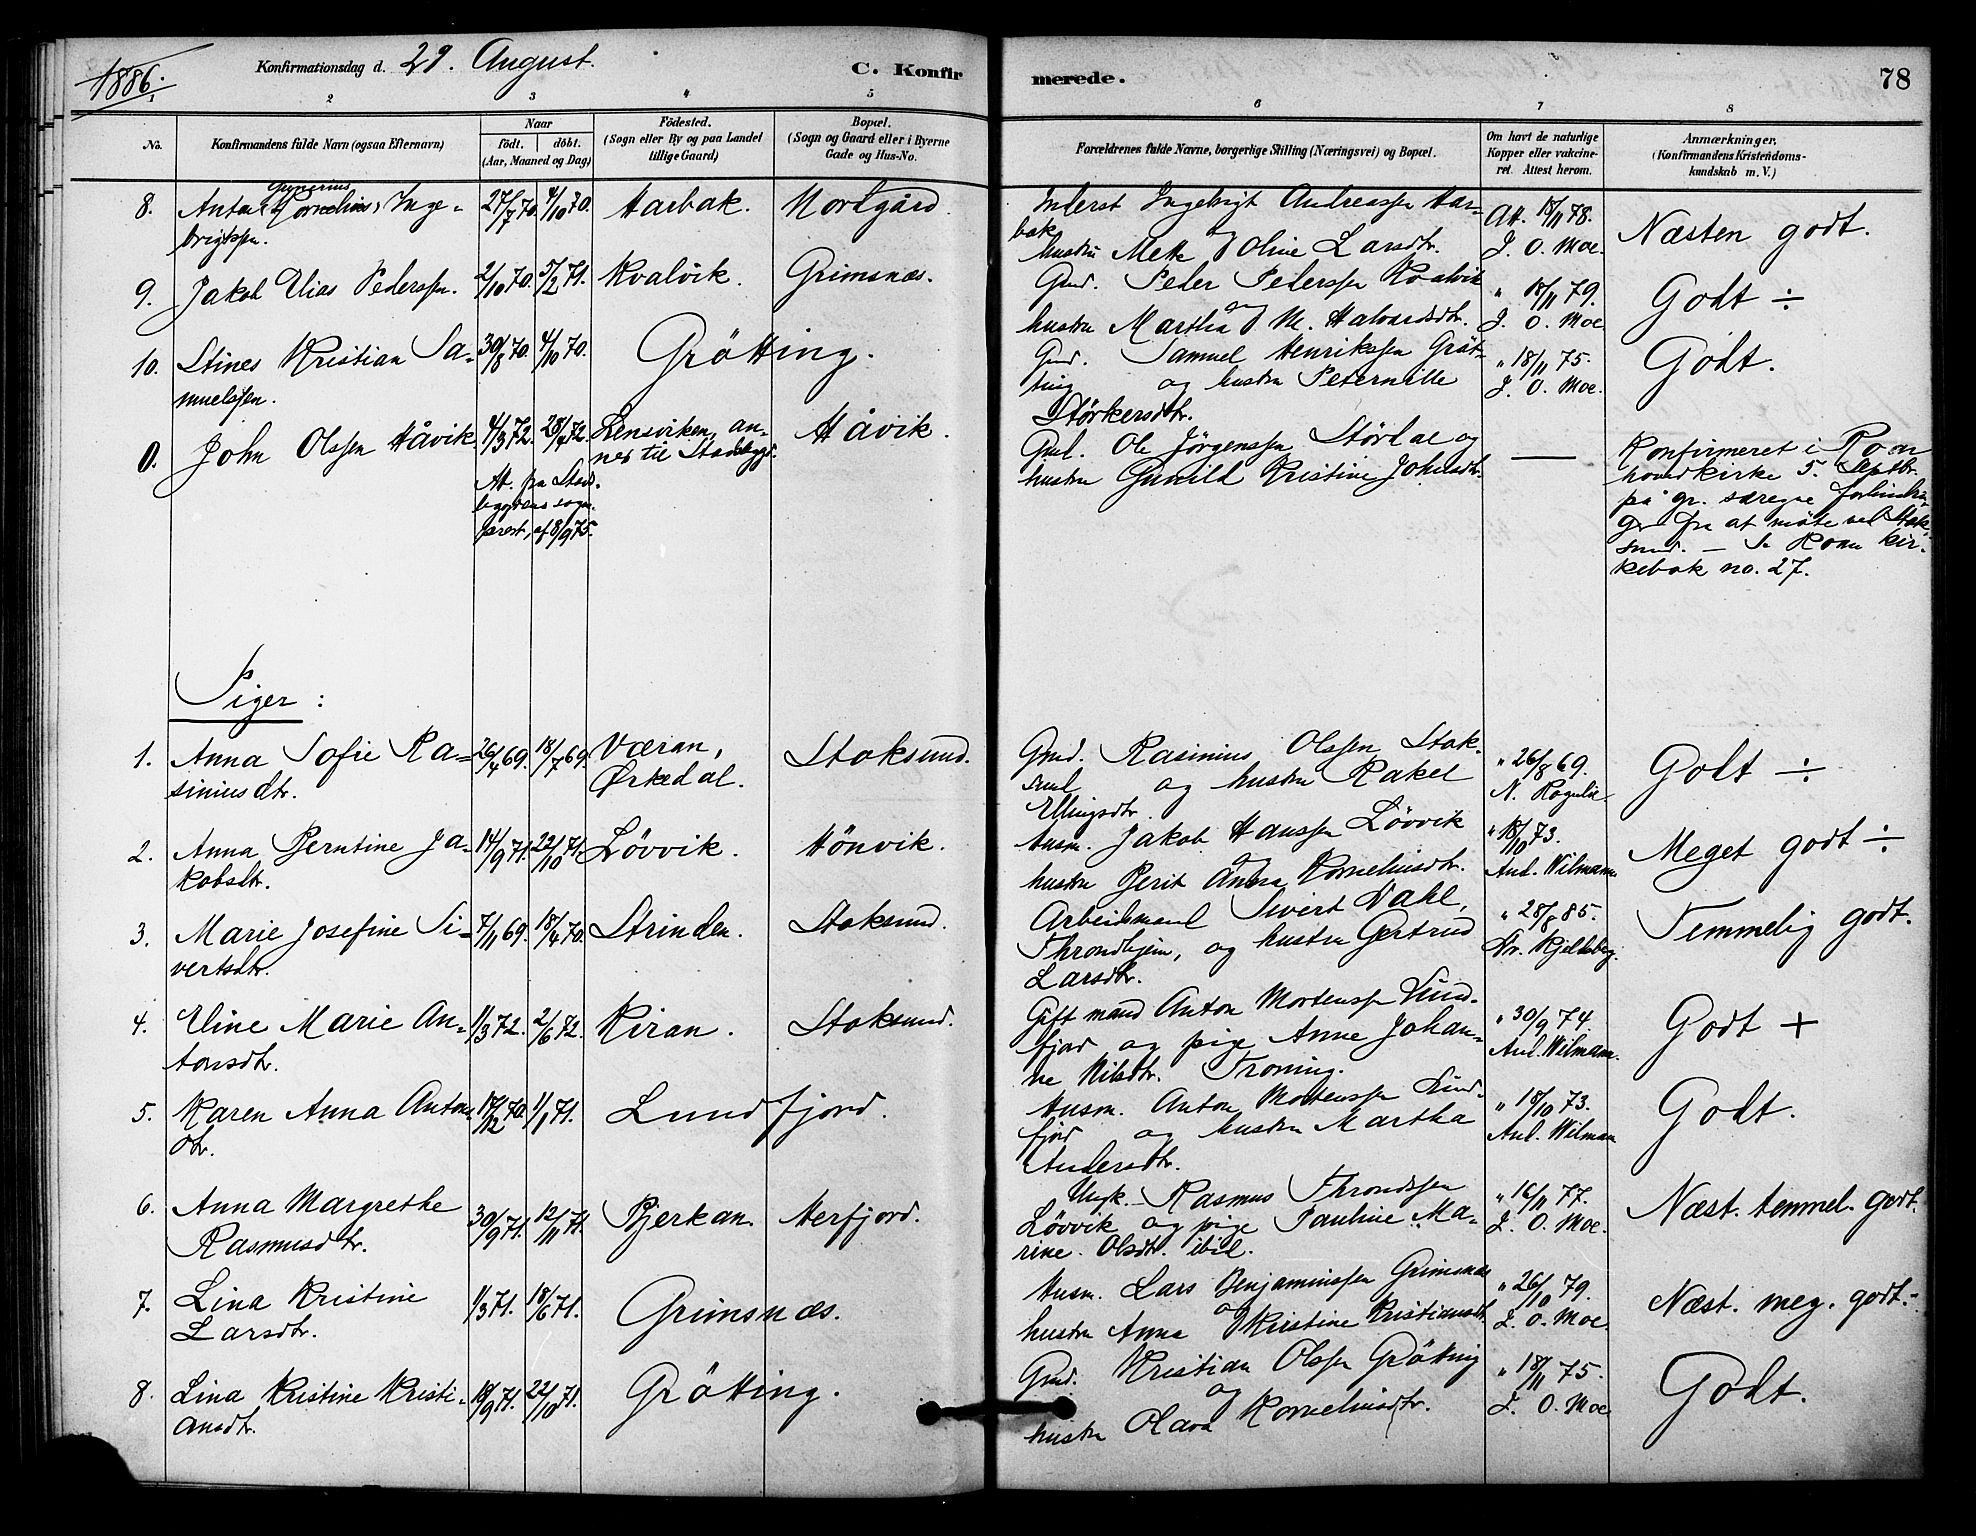 1886.
Konfirmationsdag d. 29. August.
C. Konfirmerede.
78
1 2 3 4 5 6 7 8
No.
Konfirmandens fulde Navn (ogsaa Efternavn)
Naar
födt. döbt.
(Aar, Maaned og Dag)
Födested.
(Sogn eller By og paa Landet
tillige Gaard)
Bopæl.
(Sogn og Gaard eller i Byerne
Gade og Hus-No.
Forældrenes fulde Navne, borgerlige Stilling (Næringsvei) og Bopæl.
Om havt de naturlige
Kopper eller vakcine-
ret. Attest herom.
Anmærkninger.
(Konfirmandens Kristendoms-
kundskab m. V.)
8. Anton Kornelius, Inge-
brigtssn.
27/7 70. 4/10 70. Harbak. Nordgård.
Inderst Ingebrigt Andreassen Har-
bak og
hustru Mette Oline Larsdtr.
Att. 18/11 78.
J. O. Moe.
Næsten godt.
9. Jakob Elias Pederssen.
2/10 70. 5/2 71. Kvalvik. Grimsnæs.
Gmd. Peder Pederssen Kvalvik
og
hustru Martha M. Halvardsdtr.
" 18/11 79.
J. O. Moe
Godt ÷
10. Stines Kristian Sa-
muelssen.
30/8 70. 4/10 70. Grötting.
Gmd. Samuel Henrikssen Gröt-
ting og hustru Peternille
Størkersdtr.
" 18/11 75.
J. O. Moe.
Godt.
0. John Olssen Håvik
4/3 72. 28/4 72. Lensviken, an-
nex til Stadsbygd. Håvik.
Att. fra Stads-
bygdens sogne-
prest, af 8/9 75.
Gmd. Ole Jörgenssen Stördal og
hustru Gunild Kristine Johnsdtr.
—
Konfirmeret i Roan
hovedkirke 5. Septbr.
på gr. særegne forhindrin-
ger fra at möte ved Stok-
sund. — Se Roan kir-
kebok no. 27.
Piger :
1. Anna Sofie Ra-
siniusdtr.
26/4 69. 18/7 69. Væran,
Ørkedal. Stoksund.
Gmd. Rasinius Olssen Stok-
sund og hustru Rakel
Ellingsdtr.
" 26/8 69.
Godt ÷
2. Anna Berntine Ja-
kobsdtr.
14/9 71. 22/10 71. Lövvik. Hönvik.
Husm. Jakob Hanssen Lövvik
og
hustru Berit Anna Korneliusdtr.
" 18/10 73.
Aul. Wilmann
Meget godt ÷
3. Marie Josefine Si-
vertsdtr.
7/11 69. 18/4 70. Strinden. Stoksund.
Arbeidsmand Sivert Dahl,
Throndhjem, og hustru Gertrud
Larsdtr.
" 28/8 85.
Dr. Kjeldsberg.
Temmelig godt.
4. Eline Marie An-
tonsdtr.
1/3 72. 2/6 72. Kiran. Stoksund.
Gift mand Anton Mortenssen Lund-
fjord og pige Anne Johan-
ne Nilsdtr. Troning.
" 30/9 74.
Aul. Wilmann.
Godt +
5. Karen Anna Antons-
dtr.
17/12 70. 1/1 71. Lundfjord.
Husm. Anton Mortenssen Lund-
fjord og hustru Martha
Andersdtr.
" 18/10 73.
Aul. Wilmann
Godt.
6. Anna Margrethe
Rasmusdtr.
30/9 71. 12/11 71. Bjerkan. Herfjord.
Ungk. Rasmus Throndssen
Lövvik og pige Pauline Ma-
rine Olsdtr. ibid.
" 16/11 77.
J. O. Moe.
Næst. temmel. godt.
7. Lina Kristine
Larsdtr.
1/3 71. 18/6 71. Grimsnæs.
Husm. Lars Benjaminssen Grimsnæs
og
hustru Anna Kirstine Kristiansdtr.
" 26/10 79.
J. O. Moe.
Næst. meg. godt.
8. Lina Kristine Kristi-
ansdtr.
18/9 71. 22/10 71. Grötting.
Gmd. Kristian Olssen Grötting
og
hustru Olava Kornelinsdtr.
" 18/11 75.
J. O. Moe
Godt.